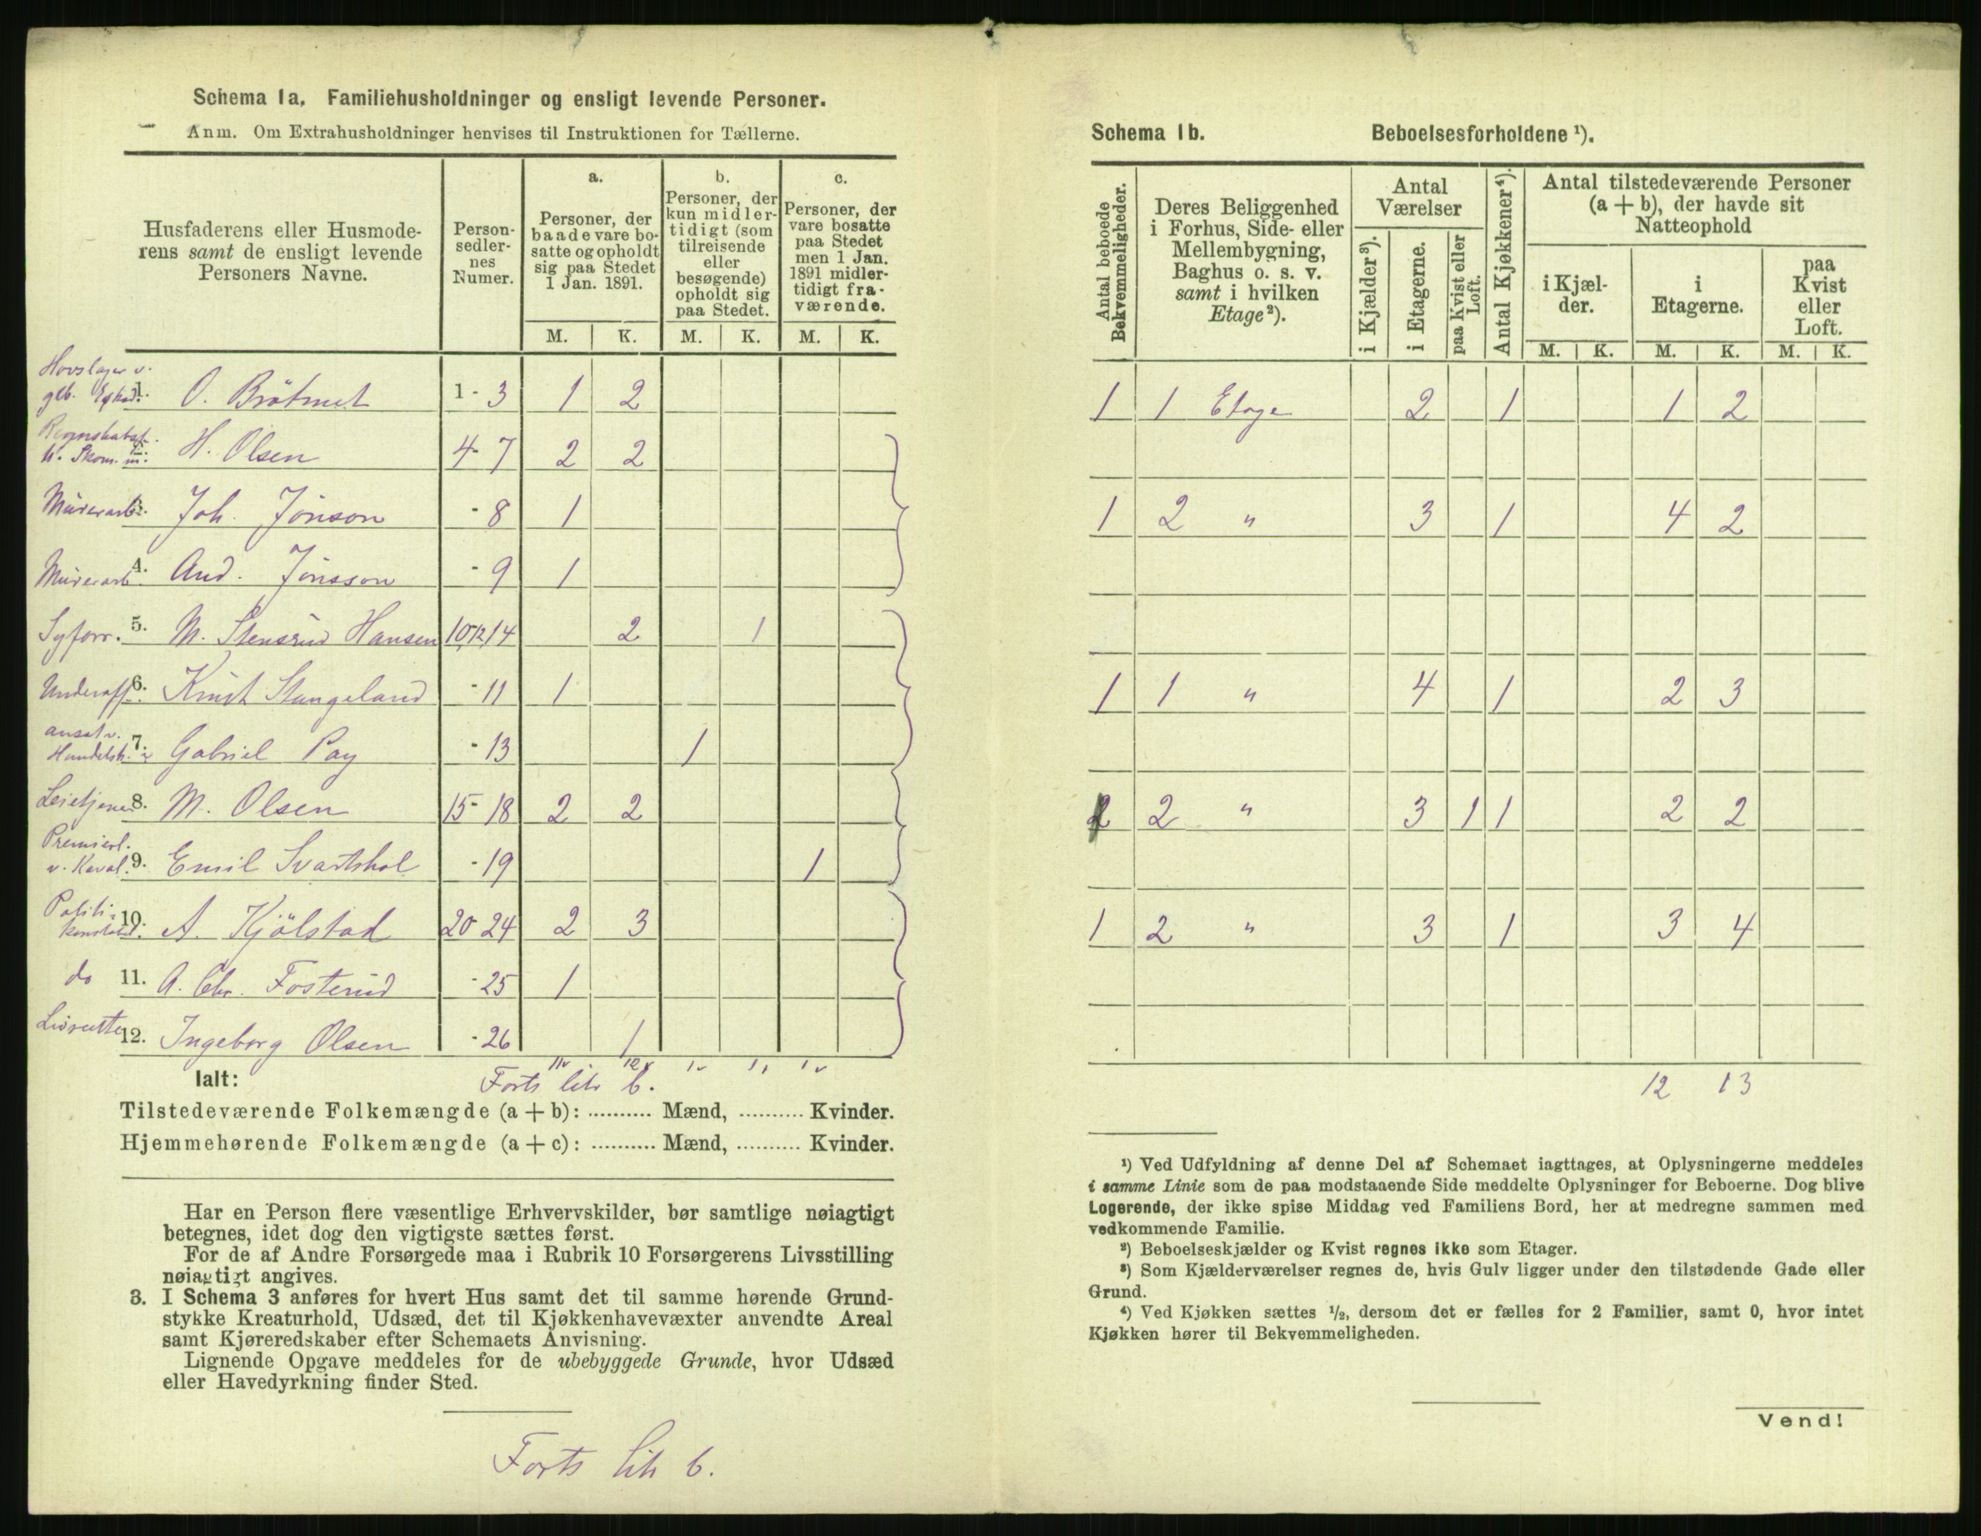 Schema 1a. Familiehusholdninger og ensligt levende Personer.
Anm. Om Extrahusholdninger henvises til Instruktionen for Tællerne.
Husfaderens eller Husmoderens samt de ensligt levende Personers Navne.
Personsedlernes Numer.
a. Personer, der baade vare bosatte og opholdt sig paa Stedet 1 Jan. 1891.
b. Personer, der kun midlertidigt (som tilreisende eller besøgende) opholdt sig paa Stedet.
c. Personer, der vare bosatte paa Stedet men 1 Jan. 1891 midlertidigt fraværende.
M. K. M. K. M. K.
Hovslager v.
1. O. Bråtmet 1-3 1 2
2. H. Olsen 4-7 2 2
Murerarb. 3. Joh. Jonson -8 1
Murerarb. 4. And. Jonsson -9 1
Syforr. 5. M. Stensrud Hansen 10,12,14 2 1
Underoff. 6. Knut Stangeland -11 1
ansat v.
Handelsh. 7. Gabriel Pay -13 1
Leietjener 8. M. Olsen 15-18 2 2
Premierl.
v. Kaval. 9. Emil Svartshol -19 1
Politi-
konstabel 10. A. Kjölstad 20-24 2 3
do 11. A. Chr. Fosterud -25 1
12. Ingeborg Olsen -26 1
11 12 1 1 1
Ialt: Forts litr b.
Tilstedeværende Folkemængde (a + b): .......... Mænd, .......... Kvinder.
Hjemmehørende Folkemængde (a + c): .......... Mænd, .......... Kvinder.
Har en Person flere væsentlige Erhvervskilder, bør samtlige nøiagtigt
betegnes, idet dog den vigtigste sættes først.
For de af Andre Forsørgede maa i Rubrik 10 Forsørgerens Livsstilling
nøiagtigt angives.
3. I Schema 3 anføres for hvert Hus samt det til samme hørende Grund-
stykke Kreaturhold, Udsæd, det til Kjøkkenhavevæxter anvendte Areal
samt Kjøreredskaber efter Schemaets Anvisning.
Lignende Opgave meddeles for de ubebyggede Grunde, hvor Udsæd
eller Havedyrkning finder Sted.
Forts litr b.
Schema 1b. Beboelsesforholdene ¹).
Antal beboede Bekvemmeligheder.
Deres Beliggenhed i Forhus, Side- eller Mellembygning, Baghus o. s. v. samt i hvilken Etage²).
Antal Værelser
i Kjælder³). i Etagerne. paa Kvist eller Loft.
Antal Kjøkkener⁴).
Antal tilstedeværende Personer (a + b), der havde sit Natteophold
i Kjælder. i Etagerne. paa Kvist eller Loft.
M. K. M. K. M. K.
1 1 Etage 2 1 1 2
1 2 " 3 1 4 2
1 1 " 4 1 2 3
2 " 3 1 1 2 2
1 2 " 3 1 3 4
12 13
¹) Ved Udfyldning af denne Del af Schemaet iagttages, at Oplysningerne meddeles
i samme Linie som de paa modstaaende Side meddelte Oplysninger for Beboerne. Dog blive
Logerende, der ikke spise Middag ved Familiens Bord, her at medregne sammen med
vedkommende Familie.
²) Beboelseskjælder og Kvist regnes ikke som Etager.
³) Som Kjælderværelser regnes de, hvis Gulv ligger under den tilstødende Gade eller
Grund.
⁴) Ved Kjøkken sættes ½, dersom det er fælles for 2 Familier, samt 0, hvor intet
Kjøkken hører til Bekvemmeligheden.
Vend!